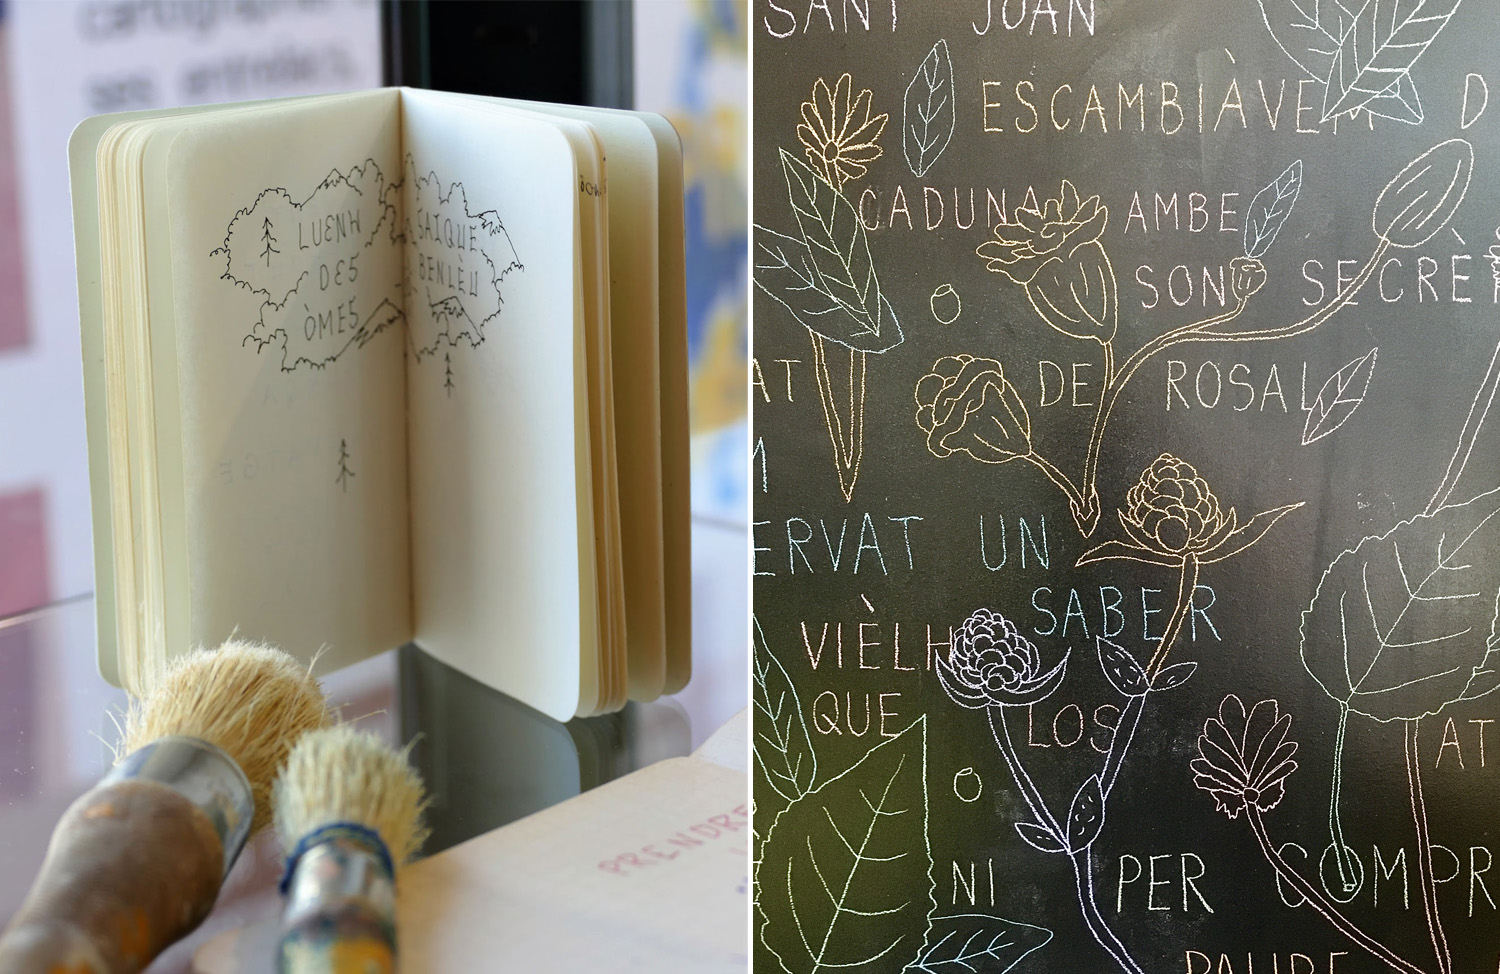 cartographier
ses entrelacs,
LUENH
DES
ÒMES
SAIQUE
BENLÈU
PRENDRE
SANT JOAN
ESCAMBIÀVEM D
CADUNA AMBE
SON SECRÈT
AT DE ROSAL
M
ERVAT UN
SABER
VIÈLH
QUE LOS AT
NI PER COMPR
PAURE